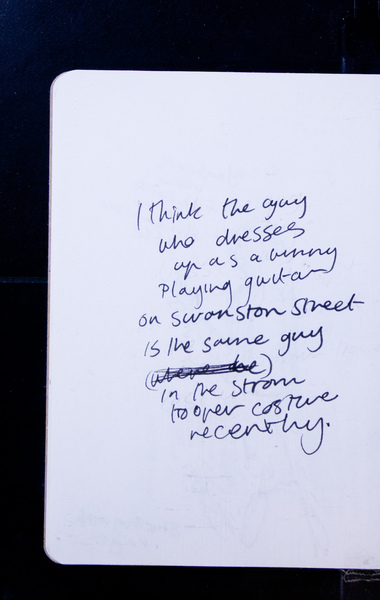 I think the guy
who dresses
up as a bunny
playing guitar
on swanston street
is the same guy
in the storm
trooper costume
recently.